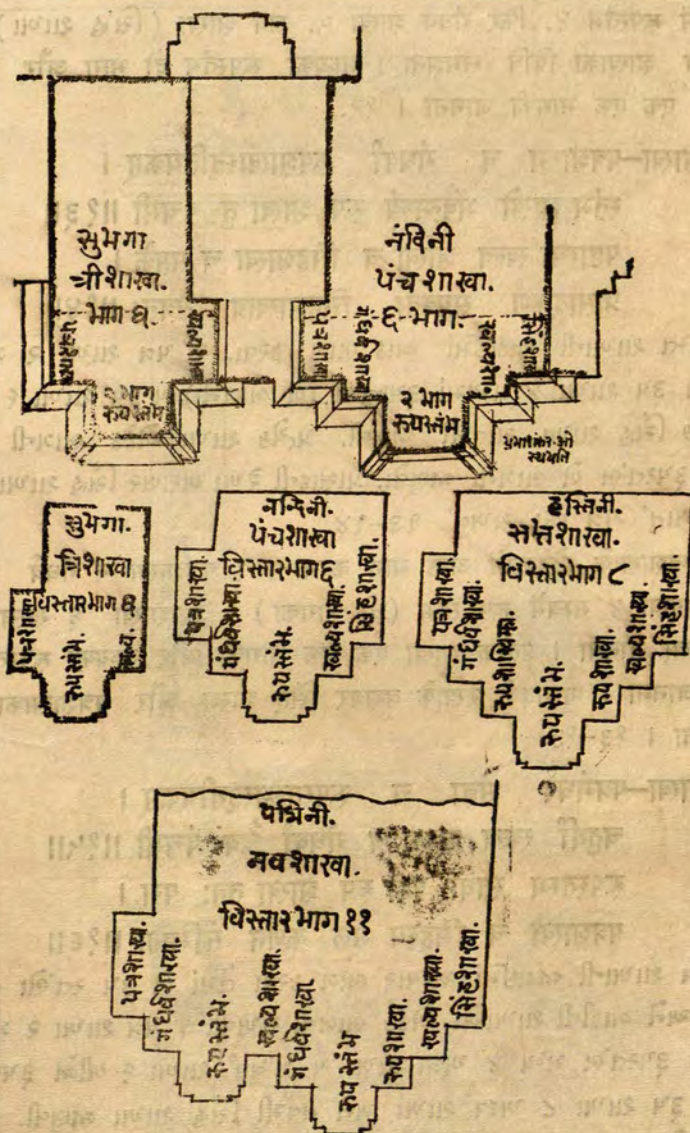 सुभगा
त्रीशाखा.
भाग ४.
पत्रशाखा
खल्वशाखा
२ भाग
रुपस्तंभ
नंदिनी
पंचशाखा.
६ भाग.
पत्रशाखा
गंधर्व शाखा
खल्वशा.
सिंहशाखा
२ भाग
रुपस्तंभ
प्रभाशंकर ओ
स्थपति
सुभगा.
त्रिशाखा
विस्तारभाग ४
पत्रशाखा
रुपस्तंभ.
खल्व.
नन्दिनी.
पंचशाखा
विस्तारभाग ६
पत्रशाखा.
गंधर्वशाखा.
रुपस्तंभ.
खल्वशाखा.
सिंहशाखा.
हस्तिनी.
सप्तशाखा.
विस्तारभाग ८
पत्रशाखा.
गंधर्वशाखा.
रुपस्तंभ.
रुपशाखा.
खल्वशाखा.
सिंहशाखा.
पद्मिनी.
नवशाखा.
विस्तारभाग ११
पत्रशाखा.
गंधर्वशाखा.
रुपस्तंभ.
खल्वशाखा.
गंधर्वशाखा.
रुपस्तंभ
रुपशाखा.
खल्वशाखा.
सिंहशाखा.